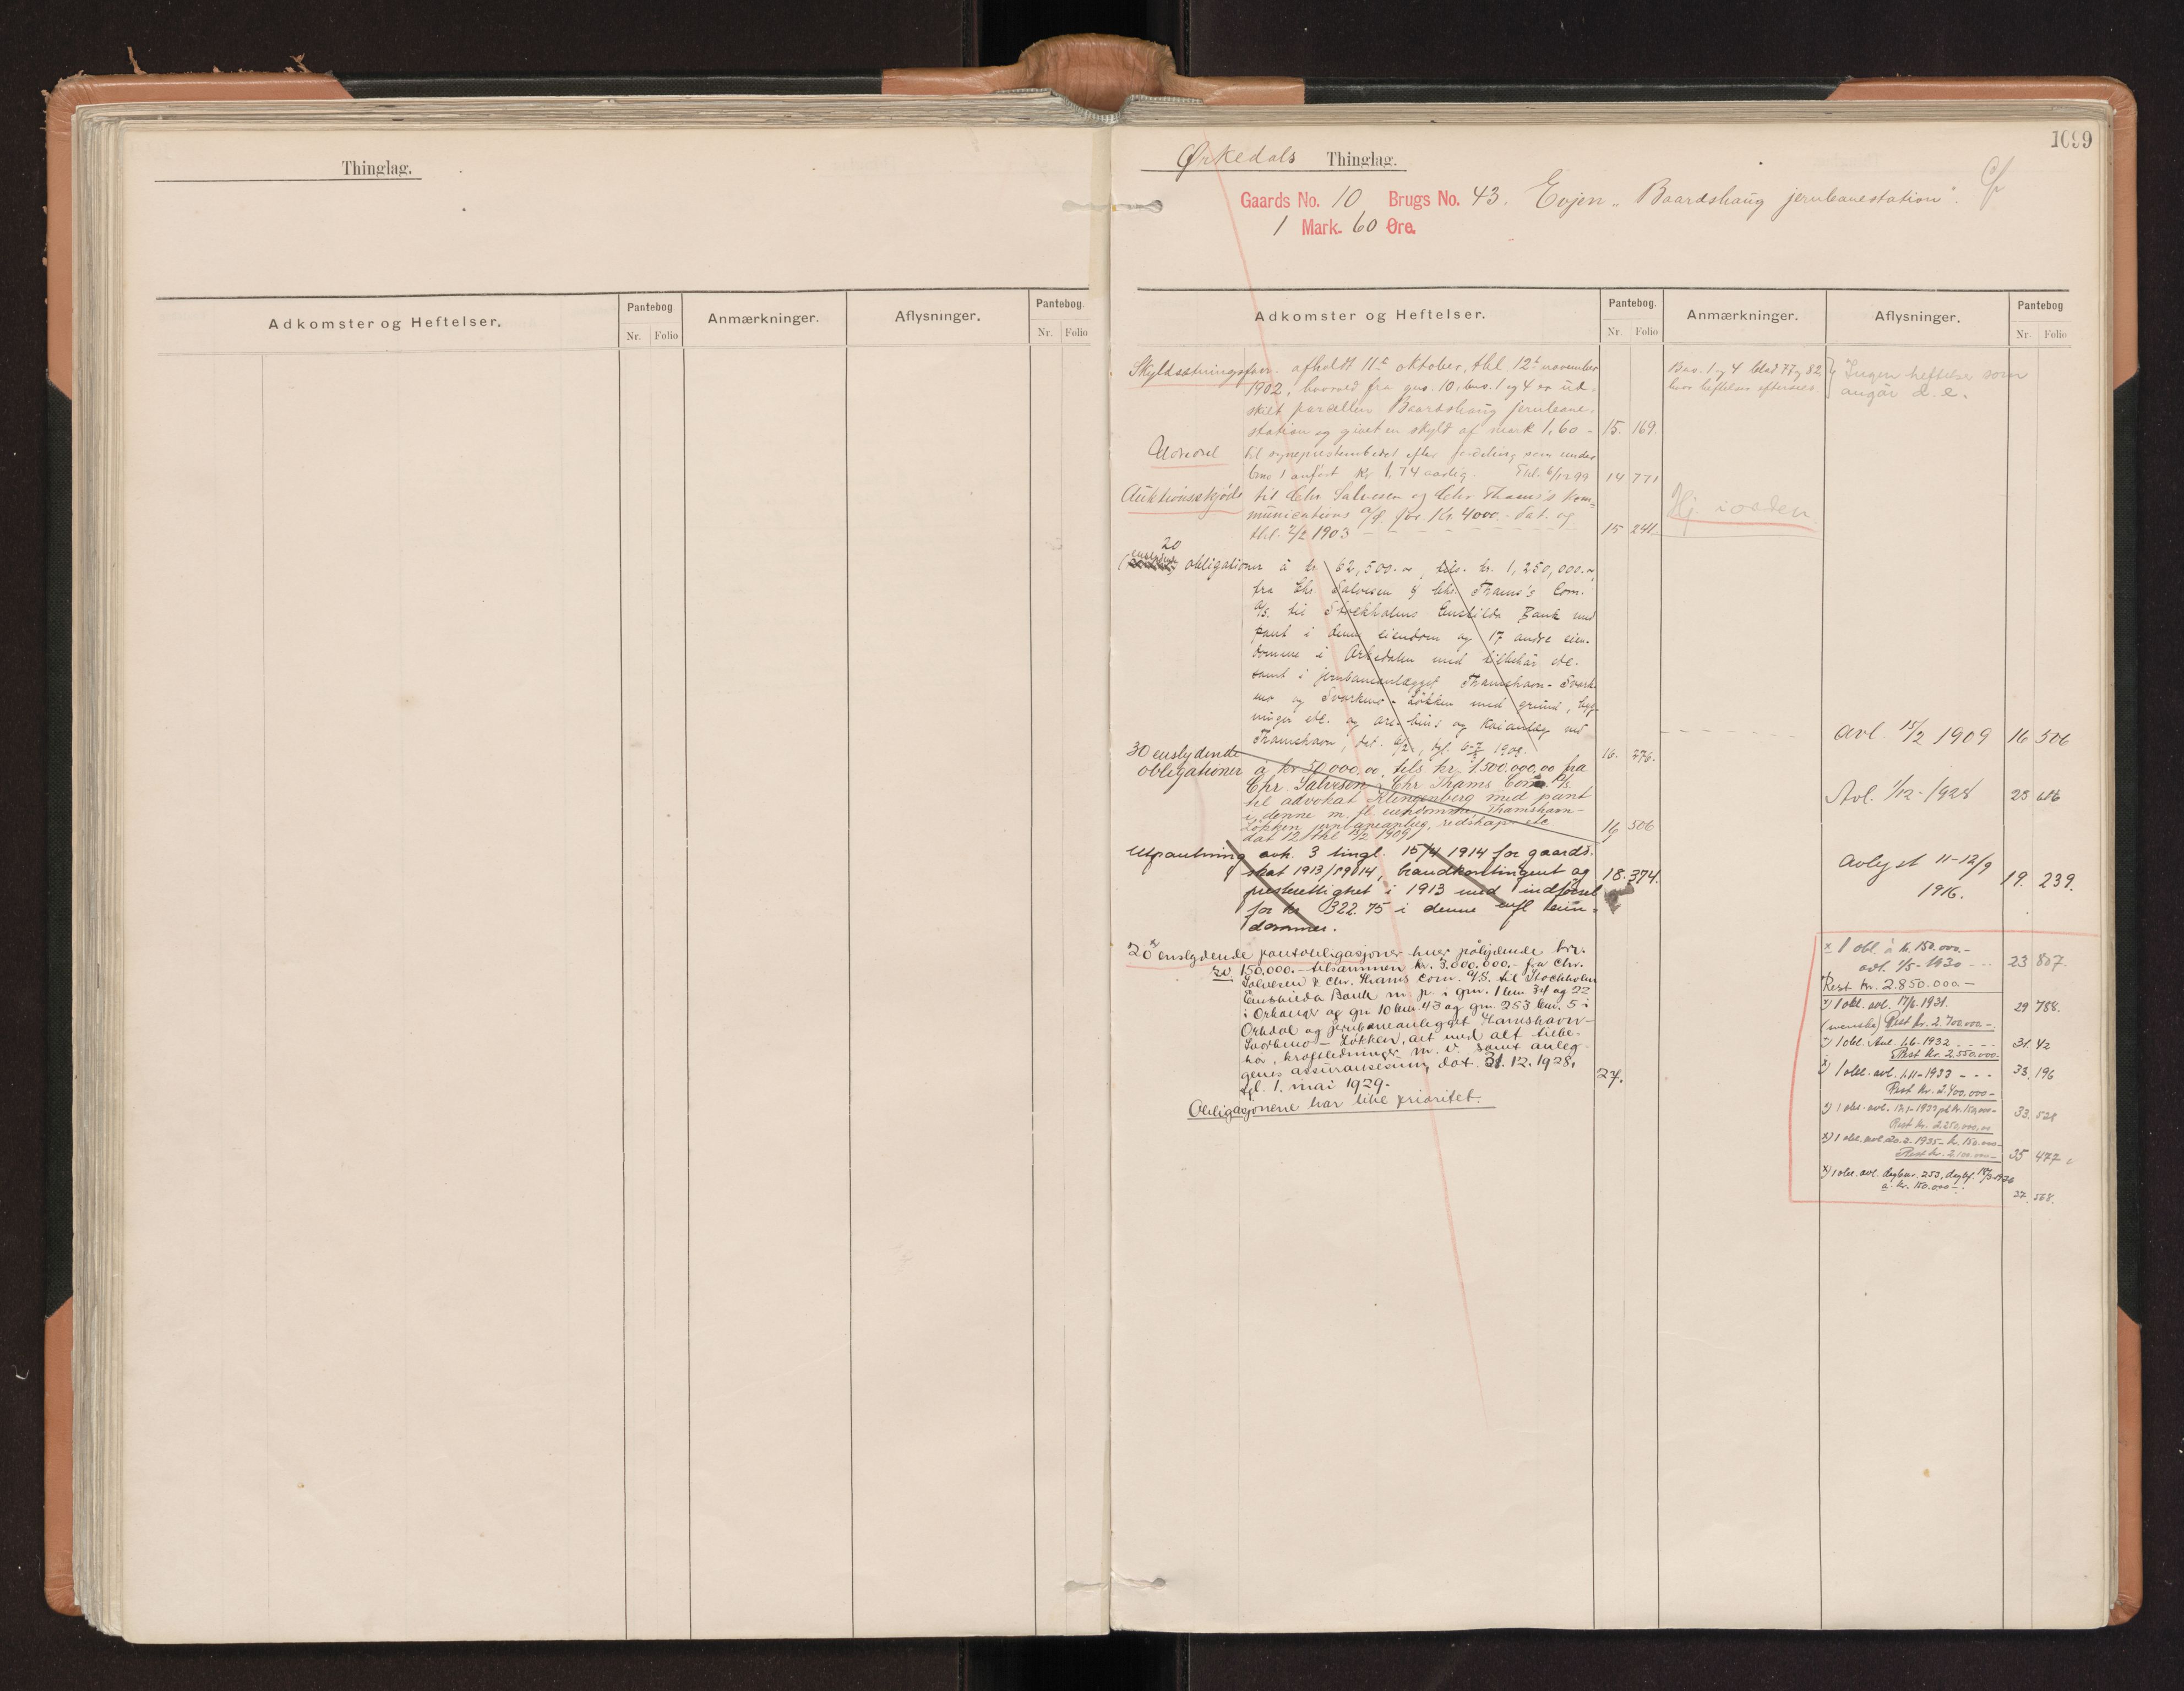 Thinglag.
Adkomster og Heftelser.
Pantebog
Nr. Folio
Anmærkninger.
Aflysninger.
Pantebog.
Nr. Folio
1099
Orkedals Thinglag.
Gaards No. 10 Brugs No. 43. Evjen „Baardshaug jernbanestation“.
1 Mark. 60 Øre.
Adkomster og Heftelser.
Pantebog.
Nr. Folio
Anmærkninger.
Aflysninger.
Pantebog
Nr. Folio
Skyldsætningsforr. afholdt 11te oktober, thl. 12te november
1902, hvorved fra gns. 10, bns. 1 og 4 er ud-
skilt parcellen Baardshaug jernbane-
station og givet en skyld af mark 1,60 - 15. 169.
Bns. 1 og 4 blad 77 og 82
hvis heftelser eftersees
Ingen heftelser som
angår d. e.
til sognepræstembedet efter fordeling som under
bno 1 anført Kr 1,74 aarlig. Thl. 6/12 99 14 771
Auktionsskjøde til Chr. Salvesen og Chr Thams's Kom-
munications a/s. for Kr. 4000.- dat. og
thl. 2/2 1903 - - - 15 241
20
obligationer à kr. 62,500.-, tils. kr. 1,250,000.-,
fra Chr. Salvesen & Chr. Thams's Com.
A/S. til Stockholms Enskilda Bank med
pant i denne eiendom og 17 andre eien-
domme i Orkedalen med tilbehør etc.
samt i jernbaneanlægget Thamshavn - Svork-
mo og Svorkmo - Løkken med grund, byg-
ninger etc. og og kaianlæg ved
Thamshavn, 16. 776.
Avl. 15/2 1909 16 506
30 enslydende
obligationer à kr 50,000,00, tils kr. 1500.000,00 fra
Chr. Salvesen & Chr Thams Com. A/S.
til advokat Klingenberg med pant
i denne m. fl. eiendomme Thamshavn-
Løkken jernbaneanlæg, redskaper etc
dat 12 thl 15/2 1909 16 506
Avl. 1/12 - 1928 23 686
Utpantning avh. 3 tingl. 15/4 1914 for gaards-
skat 1913/1914, brandkontingent og 18. 374.
presterettighet i 1913 med indførsel
for kr 322.75 i denne mfl eien-
dommer.
Avlyst 11-12/9
1916. 19. 239.
20 x enslydende pantobligasjoner hver pålydende kr.
150.000.- tilsammen kr. 3.000.000.- fra Chr.
Salvesen & Chr. Thams Com. A/S. til Stockholms
Enskilda Bank m. p. i gnr. 1 bnr. 34 og 22
i Orkanger og gnr 10 bnr. 43 og gnr. 253 bnr. 5 i
Orkdal og jernbaneanlegget Thamshavn-
Svorkmo - Løkken, alt med alt tilbe-
hør, kraftledninger m. v. samt anleg-
genes assuransesum, dat. 31. 12. 1928,
tgl. 1. mai 1929. 27.
Obligasjonene har like prioritet.
x 1 obl à kr. 150.000.-
avl. 1/5 - 1930 - - - 23 807.
Rest kr. 2.850.000.-
x) 1 obl. avl. 17/6. 1931. 29 788.
(svenske) Rest kr. 2.700.000.-
x) 1 obl. Avl. 1.6. 1932 - - - - 31. 42
Rest kr. 2.550.000.-
x) 1 obl. avl. 1.11-1933 - - - 33. 196
Rest kr. 2.400.000.-
33. 528
Rest kr. 2.250.000,00
x) 1 obl. avl 20.2. 1935 - kr. 150.000.-
Rest kr. 2.100.000.- 35 477
x) 1 obl. avl. dagbnr. 253, dagbf. 18/3 1936
à kr. 150.000.- 37. 568.